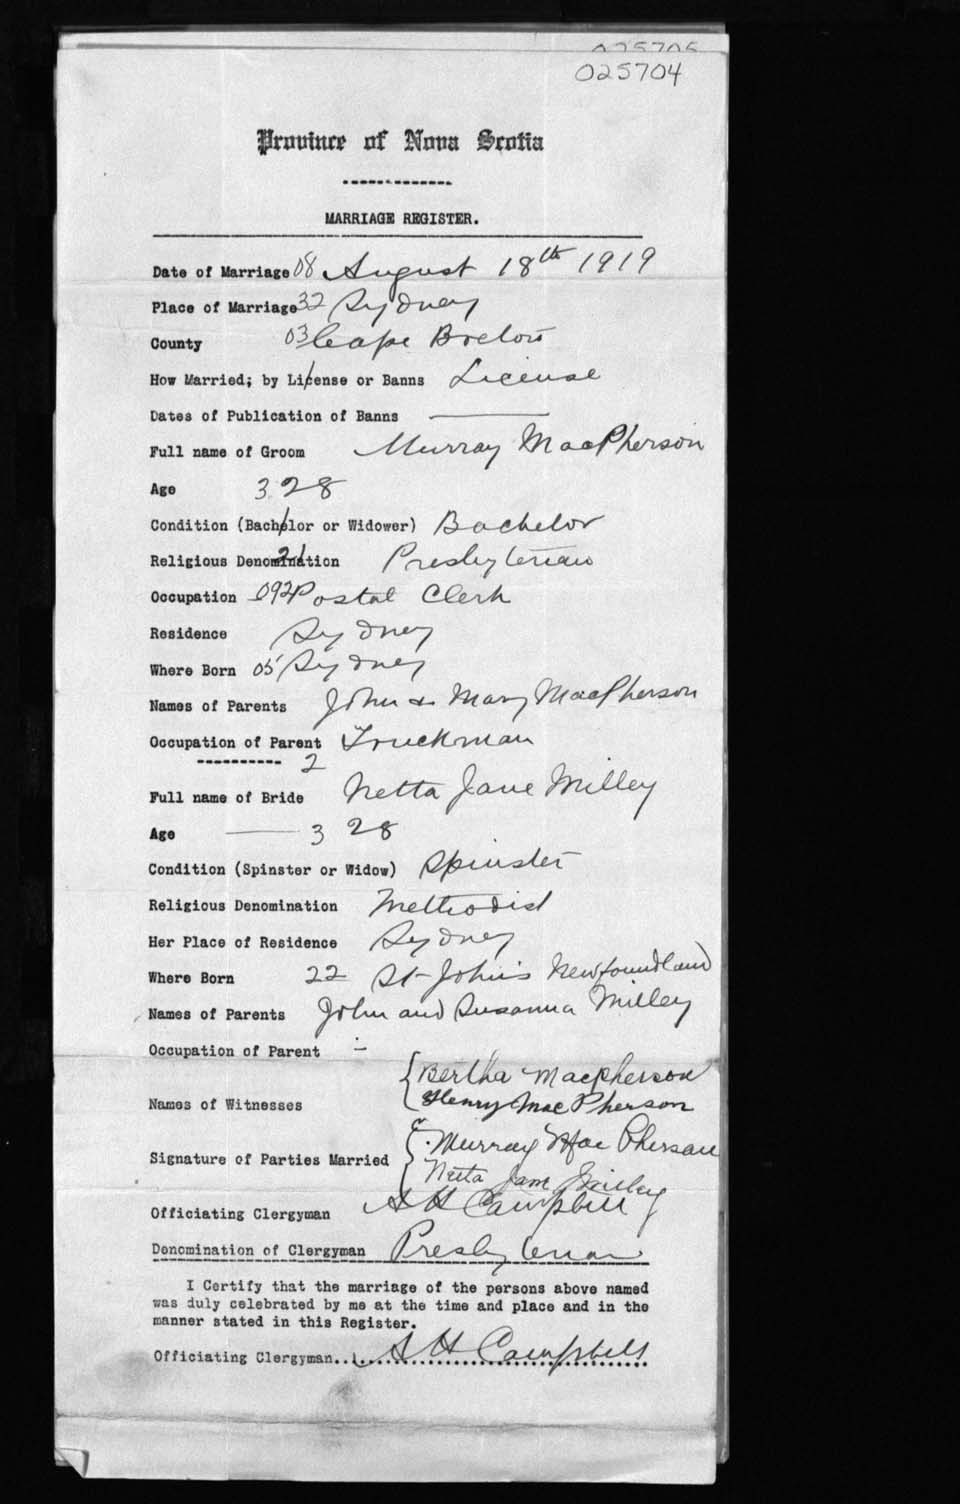 025705
025704
Province of Nova Scotia
MARRIAGE REGISTER.
Date of Marriage 08 August 18th 1919
Place of Marriage 32 Sydney
County 03 Cape Breton
How Married; by License or Banns License
Dates of Publication of Banns ———
Full name of Groom Murray MacPherson
Age 3 28
Condition (Bachelor or Widower) Bachelor
Religious Denomination 21 Presbyterian
Occupation 092 Postal Clerk
Residence Sydney
Where Born 05 Sydney
Names of Parents John & Mary MacPherson
Occupation of Parent Truckman
2
Full name of Bride Netta Jane Milley
Age 3 28
Condition (Spinster or Widow) Spinster
Religious Denomination Methodist
Her Place of Residence Sydney
Where Born 22 St John's Newfoundland
Names of Parents John and Susanna Milley
Occupation of Parent -
Bertha Macpherson
Names of Witnesses Henry MacPherson
Murray MacPherson
Signature of Parties Married Netta Jane Milley
Officiating Clergyman A H Campbell
Denomination of Clergyman Presbyterian
I Certify that the marriage of the persons above named
was duly celebrated by me at the time and place and in the
manner stated in this Register.
Officiating Clergyman... A H Campbell